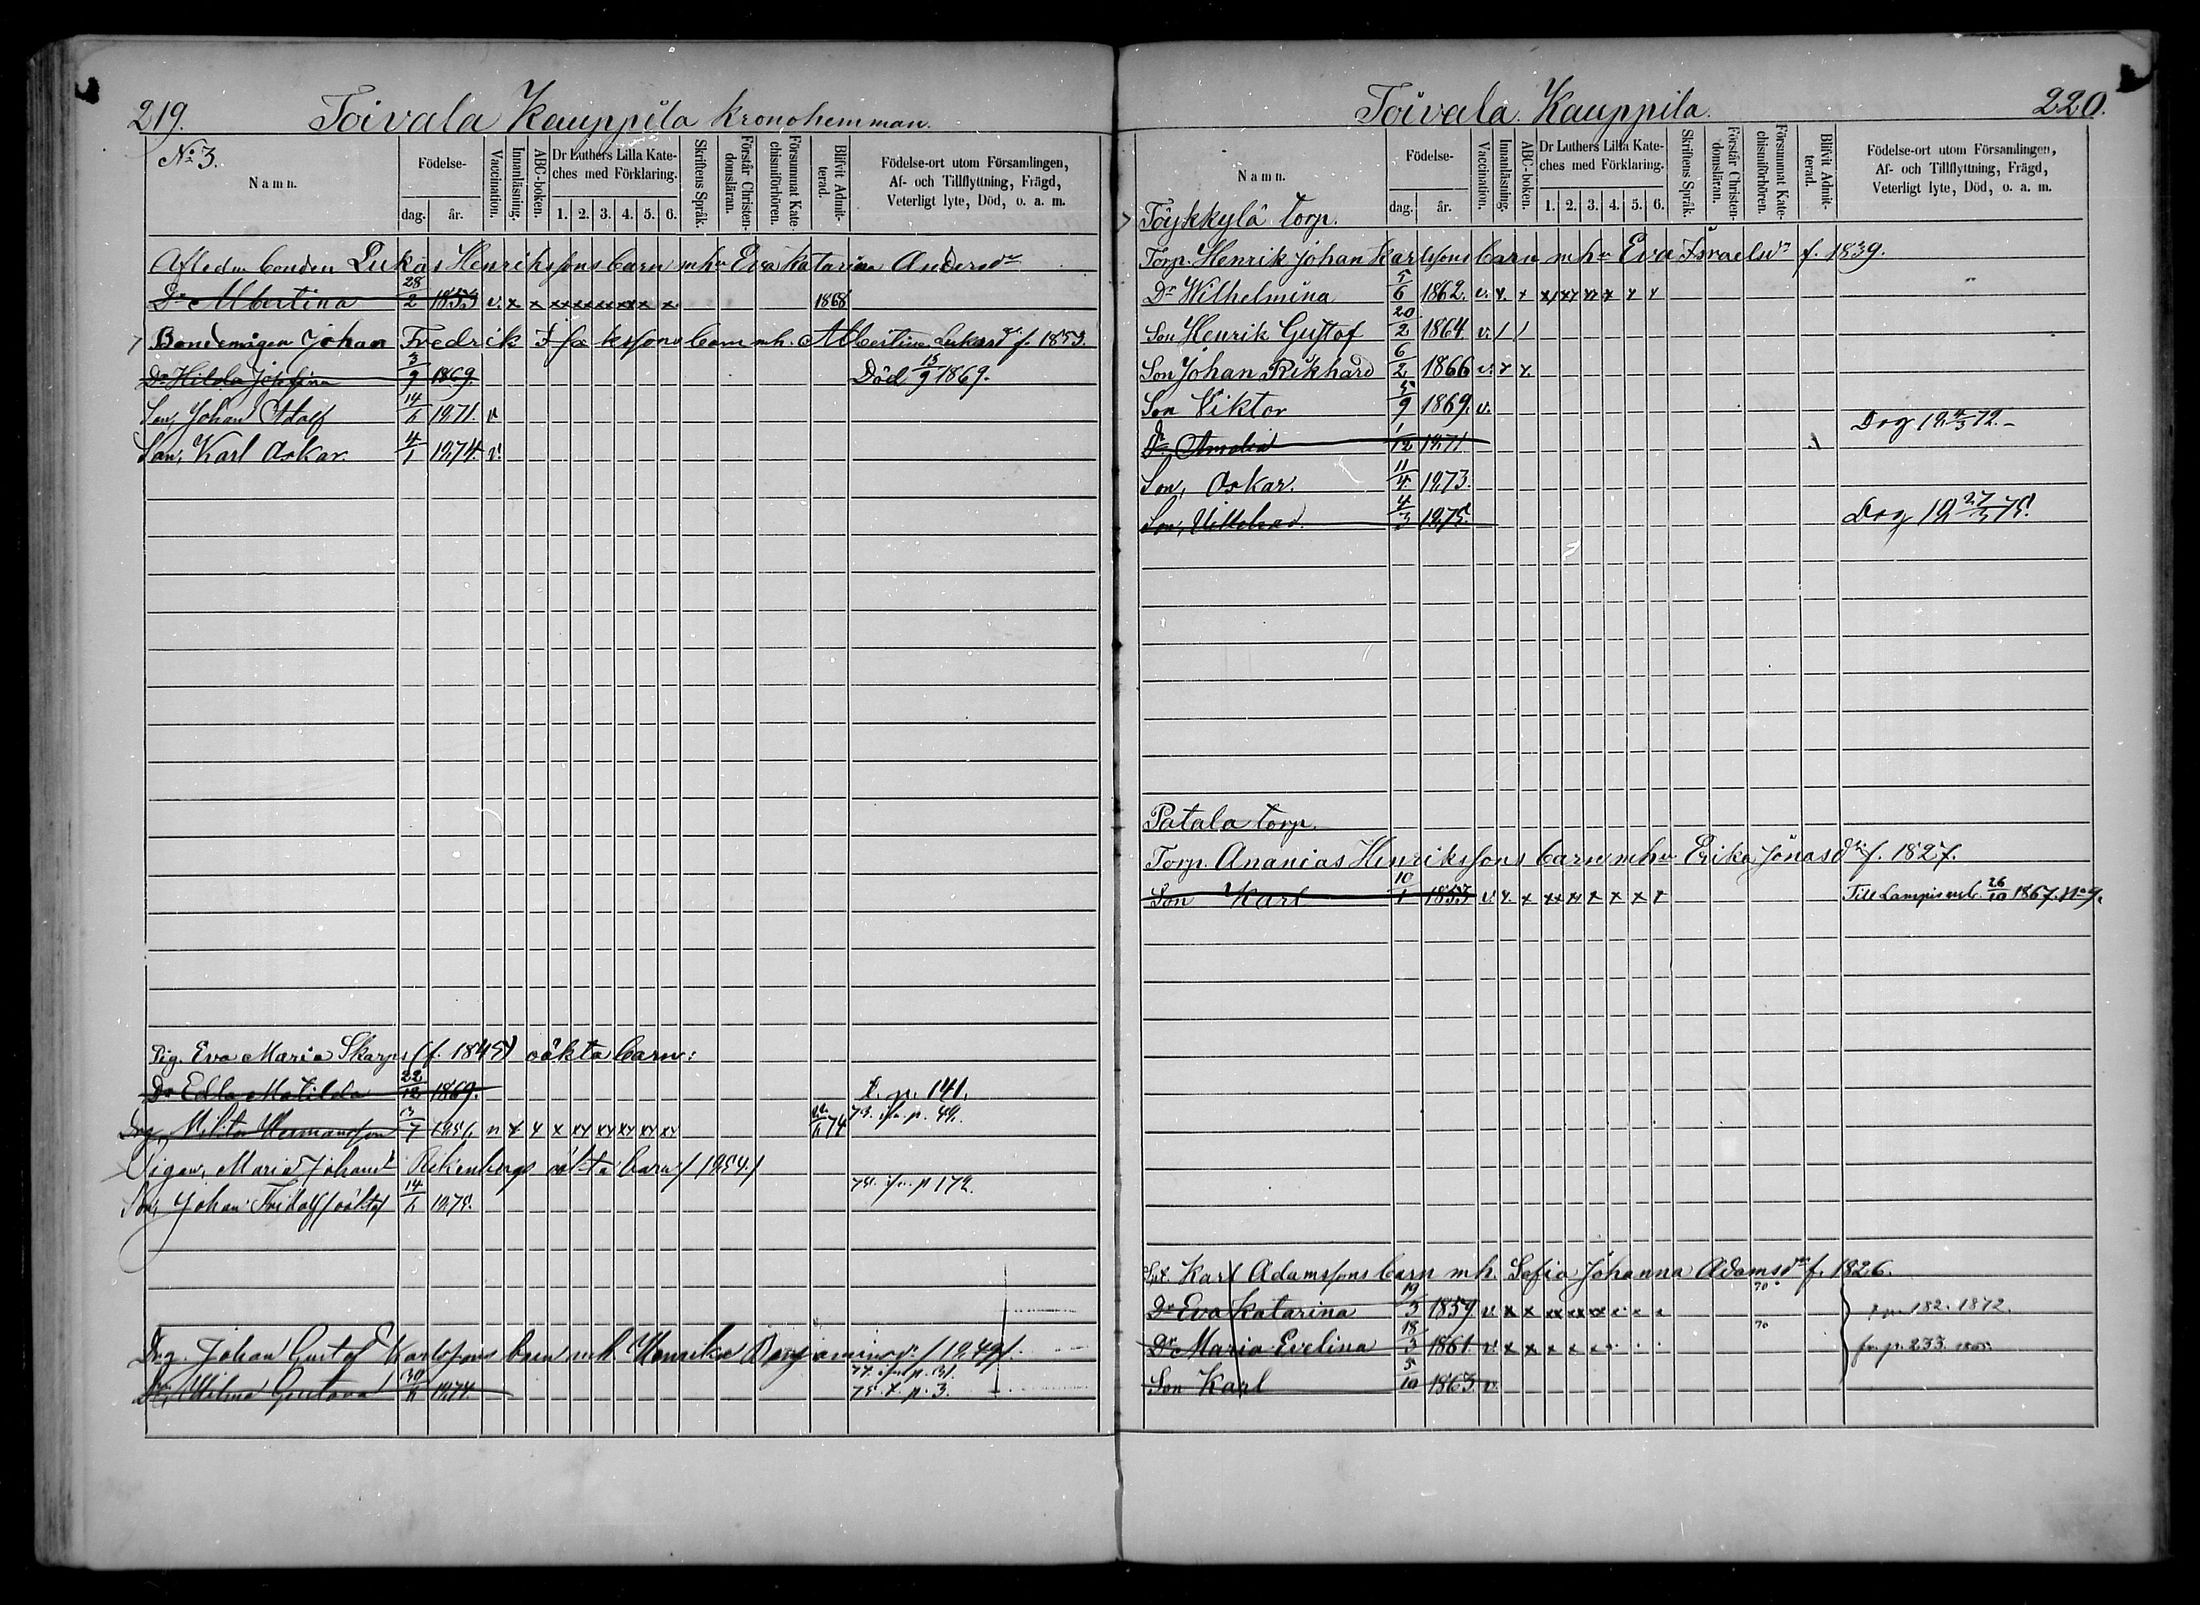 219. Toivala Kauppila kronohemman.
No 3.
Namn.
Födelse-
dag. år.
Vaccination.
Innanläsning.
ABC-boken.
Dr Luthers Lilla Kate-
ches med Förklaring.
1. 2. 3. 4. 5. 6.
Skriftens Språk.
Förstår Christen-
domsläran.
Försummat Kate-
chismiförhören.
Blifvit Admit-
terad.
Födelse-ort utom Församlingen,
Af- och Tillflyttning, Frägd,
Veterligt lyte, Död, o. a. m.
Afledne bonden Lukas Henrikssons barn m hu Eva Katarina Andersdr
Dr Albertina 28/2 1853 v. x x xx xx xx xx x x 1868
Bondemågen Johan Fredrik Isakssons barn m h. Albertina Lukasdr f. 1853.
Dr Hilda Josefina 3/9 1869. Död 15/9 1869.
Son, Johan Adolf 14/1 1871. v
Son, Karl Oskar. 4/1 1874. v.
Pig. Eva Maria Skarps (f. 1845) oäkta barn:
Dr Edla Matilda 22/12 1869. t. p. 141.
Drg, Viktor Hermansson 13/7 73. ifr. p. 49.
Pigan, Maria Johans Rikenbergs oäkta barn / 1854 /
Son, Johan Fridolf / oäkta / 14/1 1875. 75. ifr. p 172.
Drg. Johan Gustaf Karlssons barn m h Henrika Benjaminsdr / 1849 /.
Dr, Wilma Gustava 30/11 1874. 75 t. p. 3.
Toivala Kauppila. 220.
Namn.
Födelse-
dag. år.
Vaccination.
Innanläsning.
ABC-boken.
Dr Luthers Lilla Kate-
ches med Förklaring.
1. 2. 3. 4. 5. 6.
Skriftens Språk.
Förstår Christen-
domsläran.
Försummat Kate-
chismiförhören.
Blifvit Admit-
terad.
Födelse-ort utom Församlingen,
Af- och Tillflyttning, Frägd,
Veterligt lyte, Död, o. a. m.
Töykkylä torp.
Torp. Henrik Johan Karlssons barn m hu Eva Israelsdr f. 1839.
Dr Wilhelmina 5/6 1862. v. x. x x x x x x x
Son Henrik Gustof 20/2 1864. v. / /
Son Johan Rikhard 6/2 1866 v. x x.
Son Viktor 5/9 1869. v.
Dr Amalia 1/12 1871 Dog 18 4/3 72.
Son, Oskar. 11/4 1873.
Son, 4/3 1875. Dog 18 27/3 75.
Patala torp.
Torp. Ananias Henrikssons barn m hu Erika Jonasdr f. 1827.
Son Karl 10/1 1853 v. x. x xx xx x x x x Till Lampis mb. 26/10 1867. No 9.
Karl Adamssons barn m h. Sofia Johanna Adamsdr f. 1826.
Dr Eva Katarina 19/3 1859 v. x x xx xx xx x x x 70 t. p. 182. 1872.
Dr Maria Evelina 18/3 1861. v. x x x x x 70 fr. p. 233.
Son Karl 5/10 1863 v.